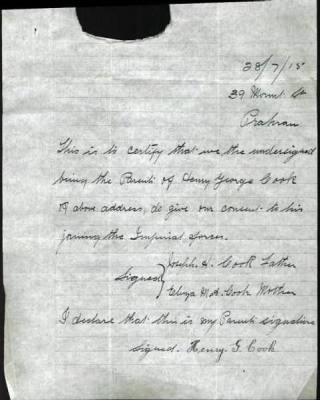 28/7/15
29 Mount St
Prahran
This is to certify that we, the undersigned
being the Parents of Henry George Cook
of above address, do give our consent to his
joining the Imperial forces.
Joseph. H. Cook Father
Signed
Eliza M. A. Cook Mother
I declare that this is my Parents signature
signed. Henry. G. Cook